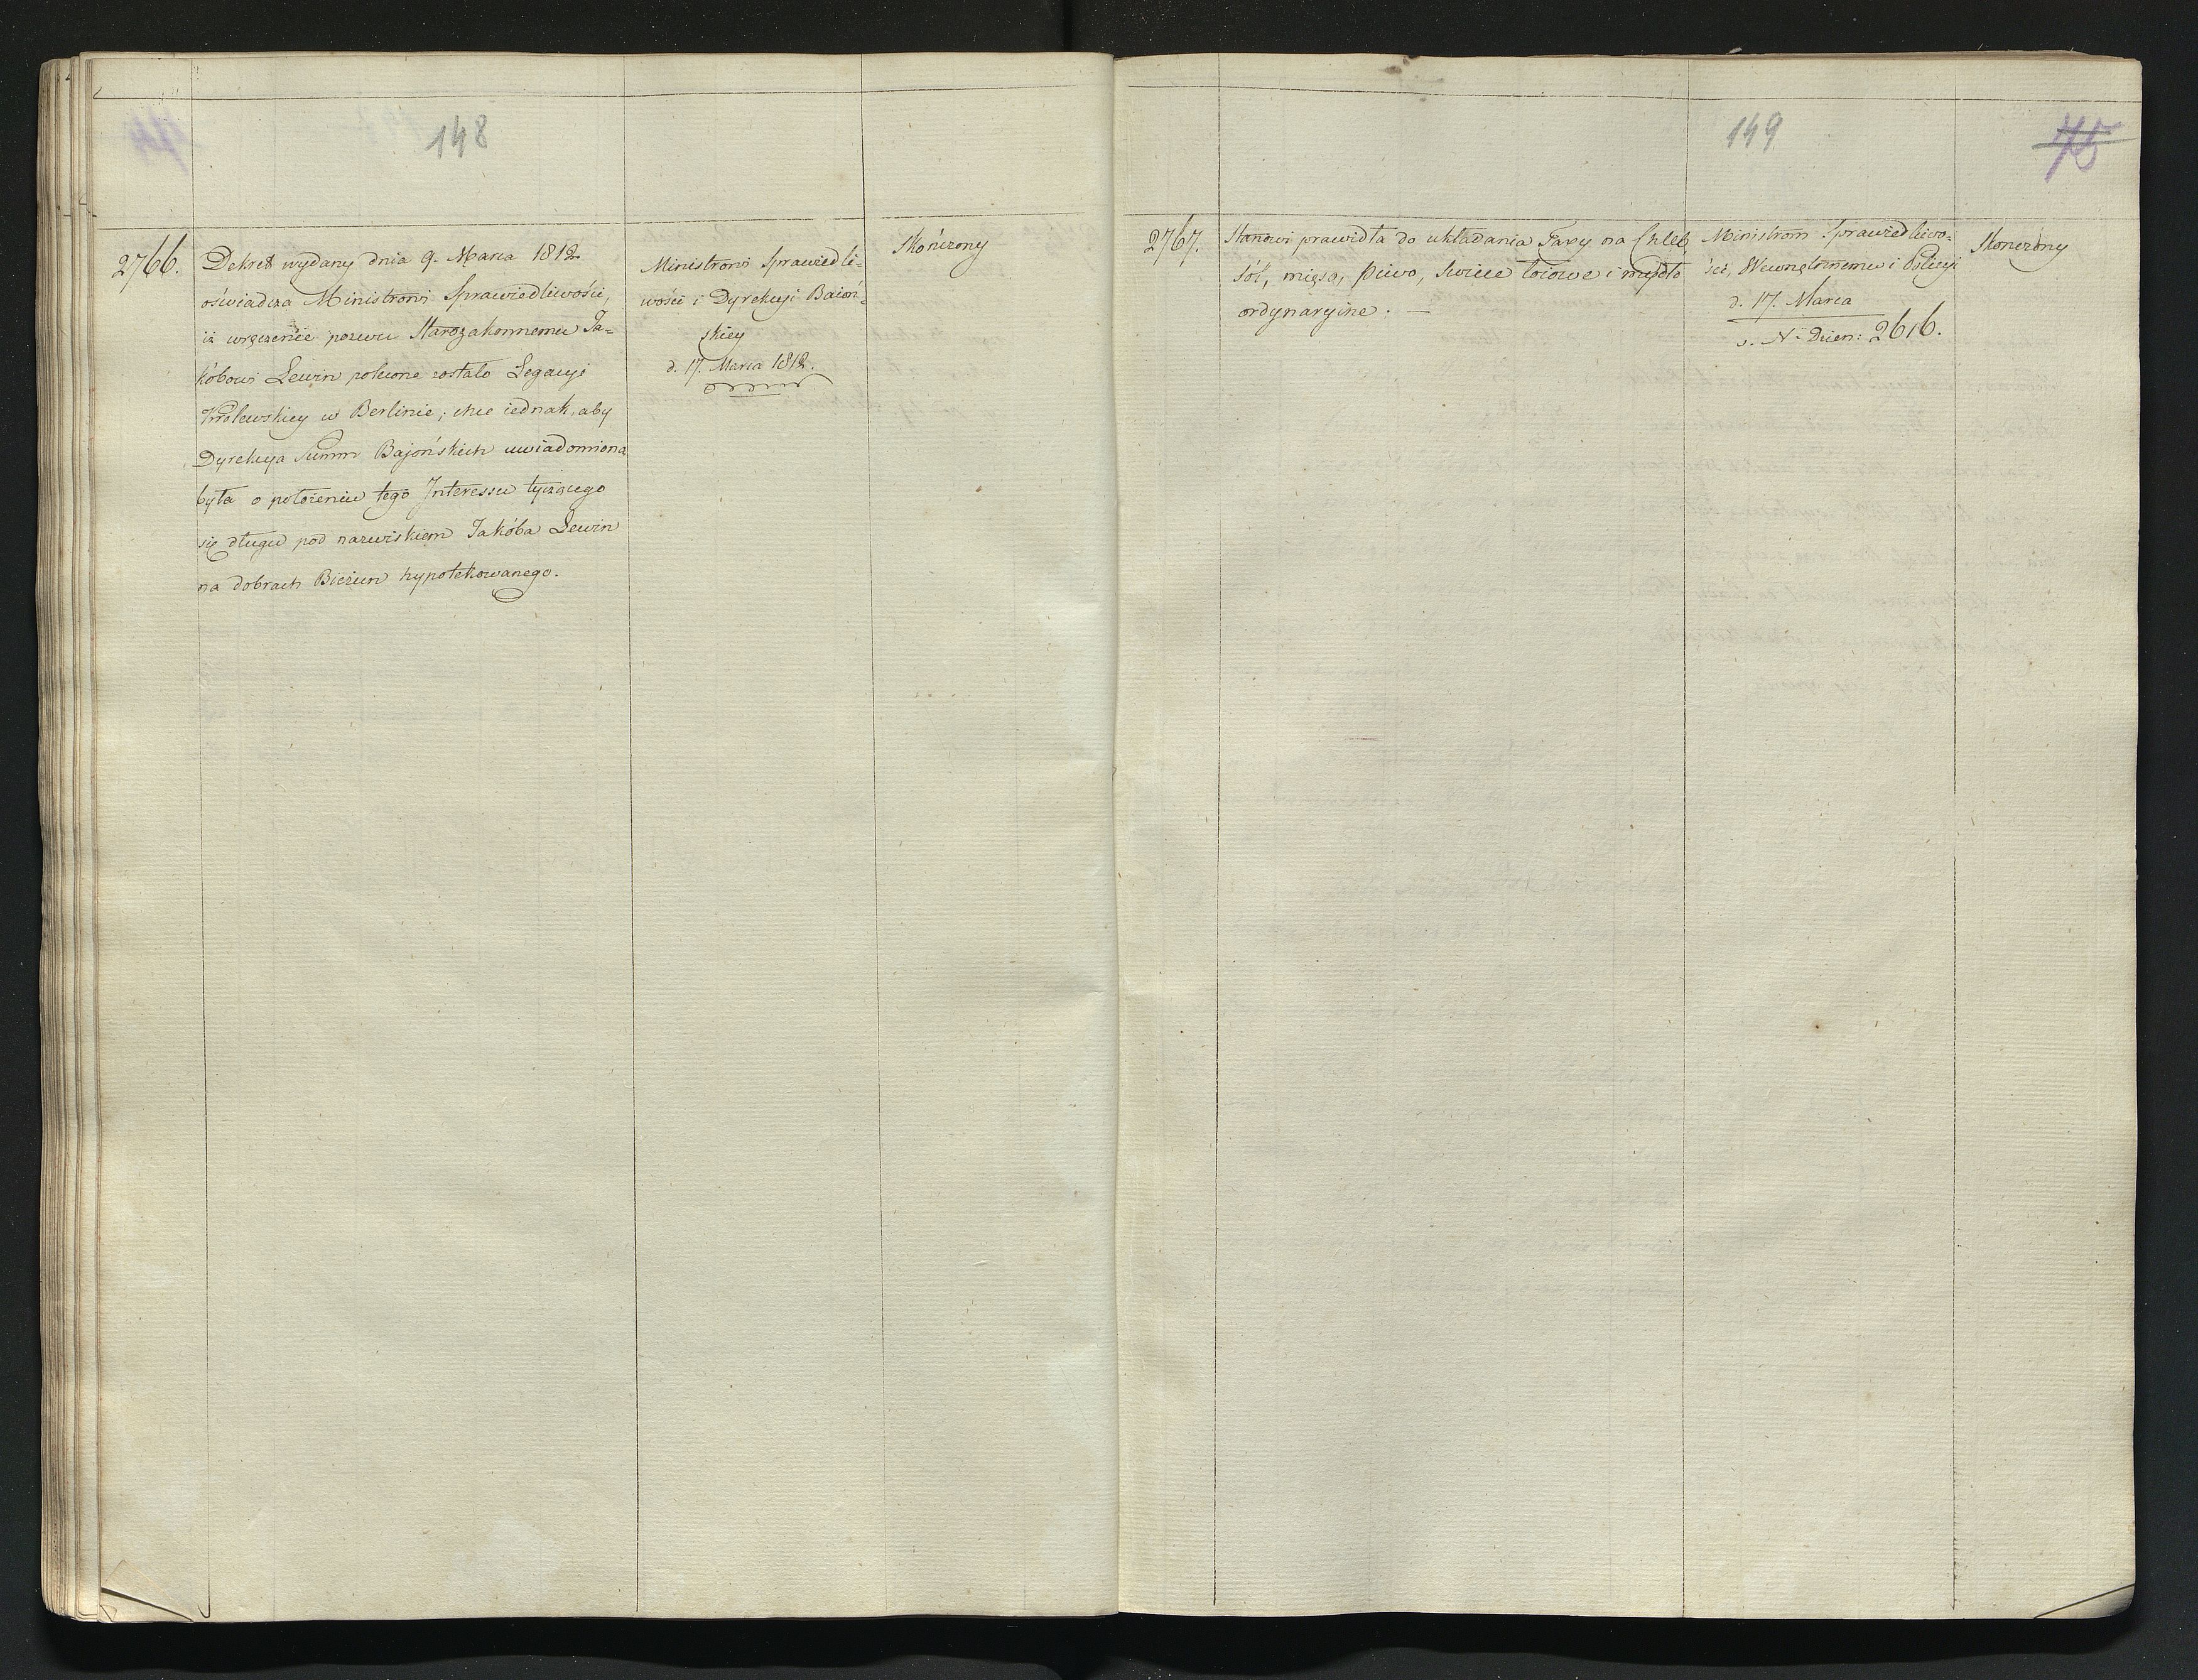 148
2766.
Dekret wydany dnia 9. Marca 1812
oświadcza Ministrowi Sprawiedliwości,
iż wręczenie pozwu Starozakonnemu Ja-
kóbowi Lewin polecone zostało Legacyi
Królewskiey w Berlinie; chce iednak, aby
Dyrekcya Summ Bajońskich uwiadomiona
była o położeniu tego Interessu tyczącego
się długu pod nazwiskiem Jakóba Lewin
na dobrach Bieżun hypotekowanego.
Ministrowi Sprawiedli-
wości i Dyrekcyi Baioń-
skiey
d. 17. Marca 1812.
Skończony
149
75
2767.
Stanowi prawidła do układania Taxy na Chleb,
sól, mięso, piwo, świece łoiowe i mydło
ordynaryine. —
Ministrom Sprawiedliwo-
ści, Wewnętrznemu i Policyi
d. 17. Marca
v. N° Dzien: 2616.
Skończony